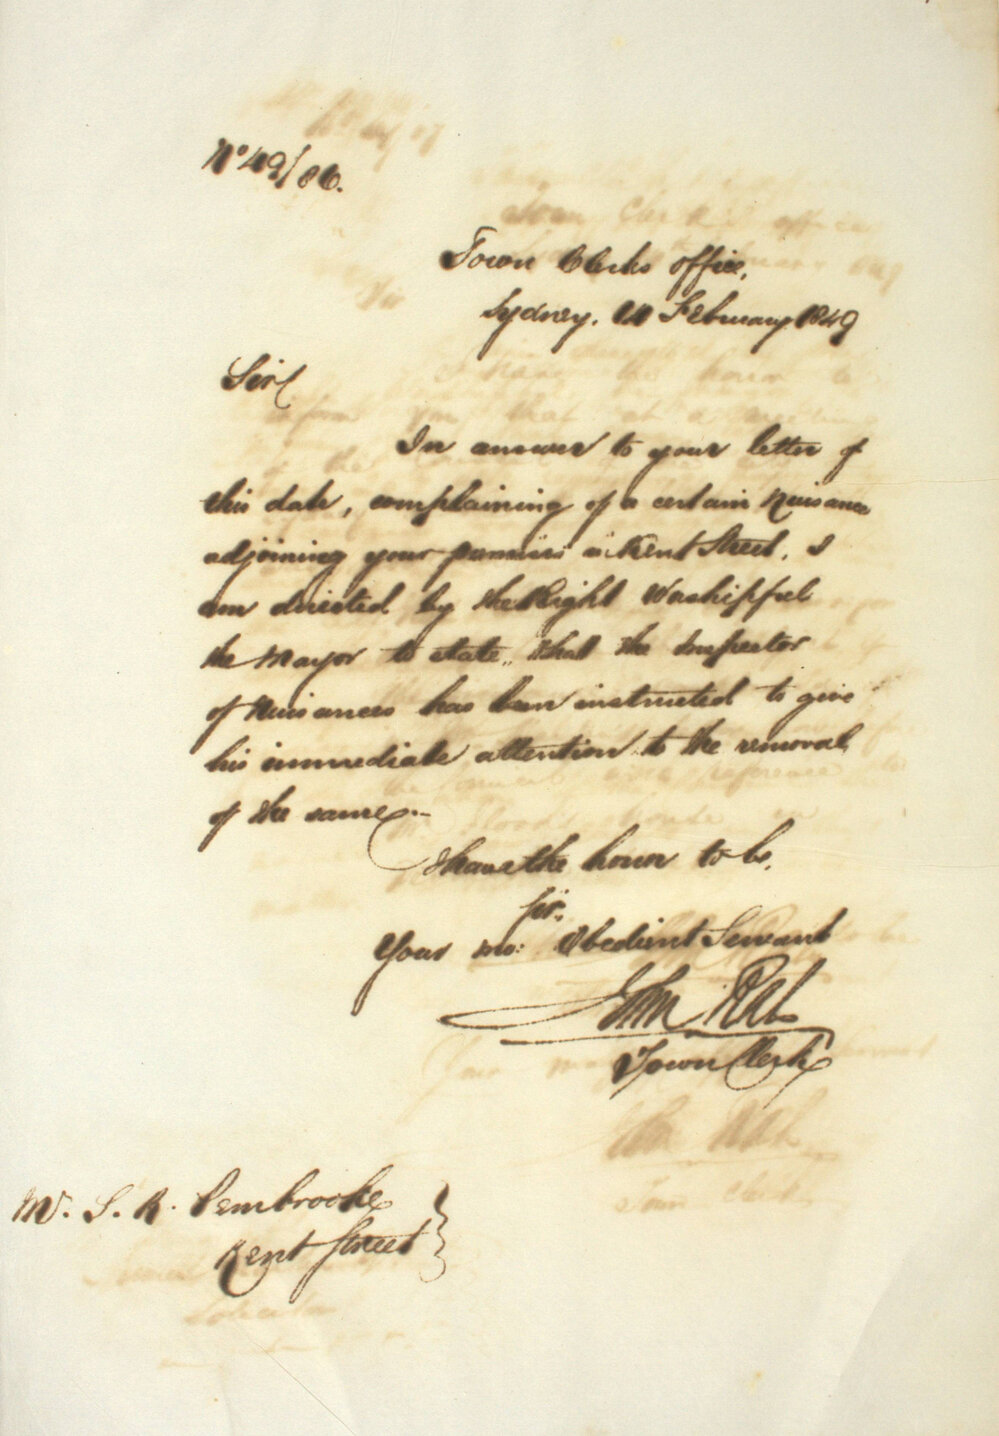 No 49/86.
Town Clerks Office,
Sydney. 14 February 1849
Sir/
In answer to your letter of
this date, complaining of a certain Nuisance
adjoining your premises in Kent Street, I
am directed by the Right Worshipful
the Mayor to state, that the Inspector
of Nuisances has been instructed to give
his immediate attention to the removal
of the same
I have the honor to be,
Sir,
Your mo: Obedient Servant
John Rae
Town Clerk
Mr. S. R. Pembrooke
Kent Street